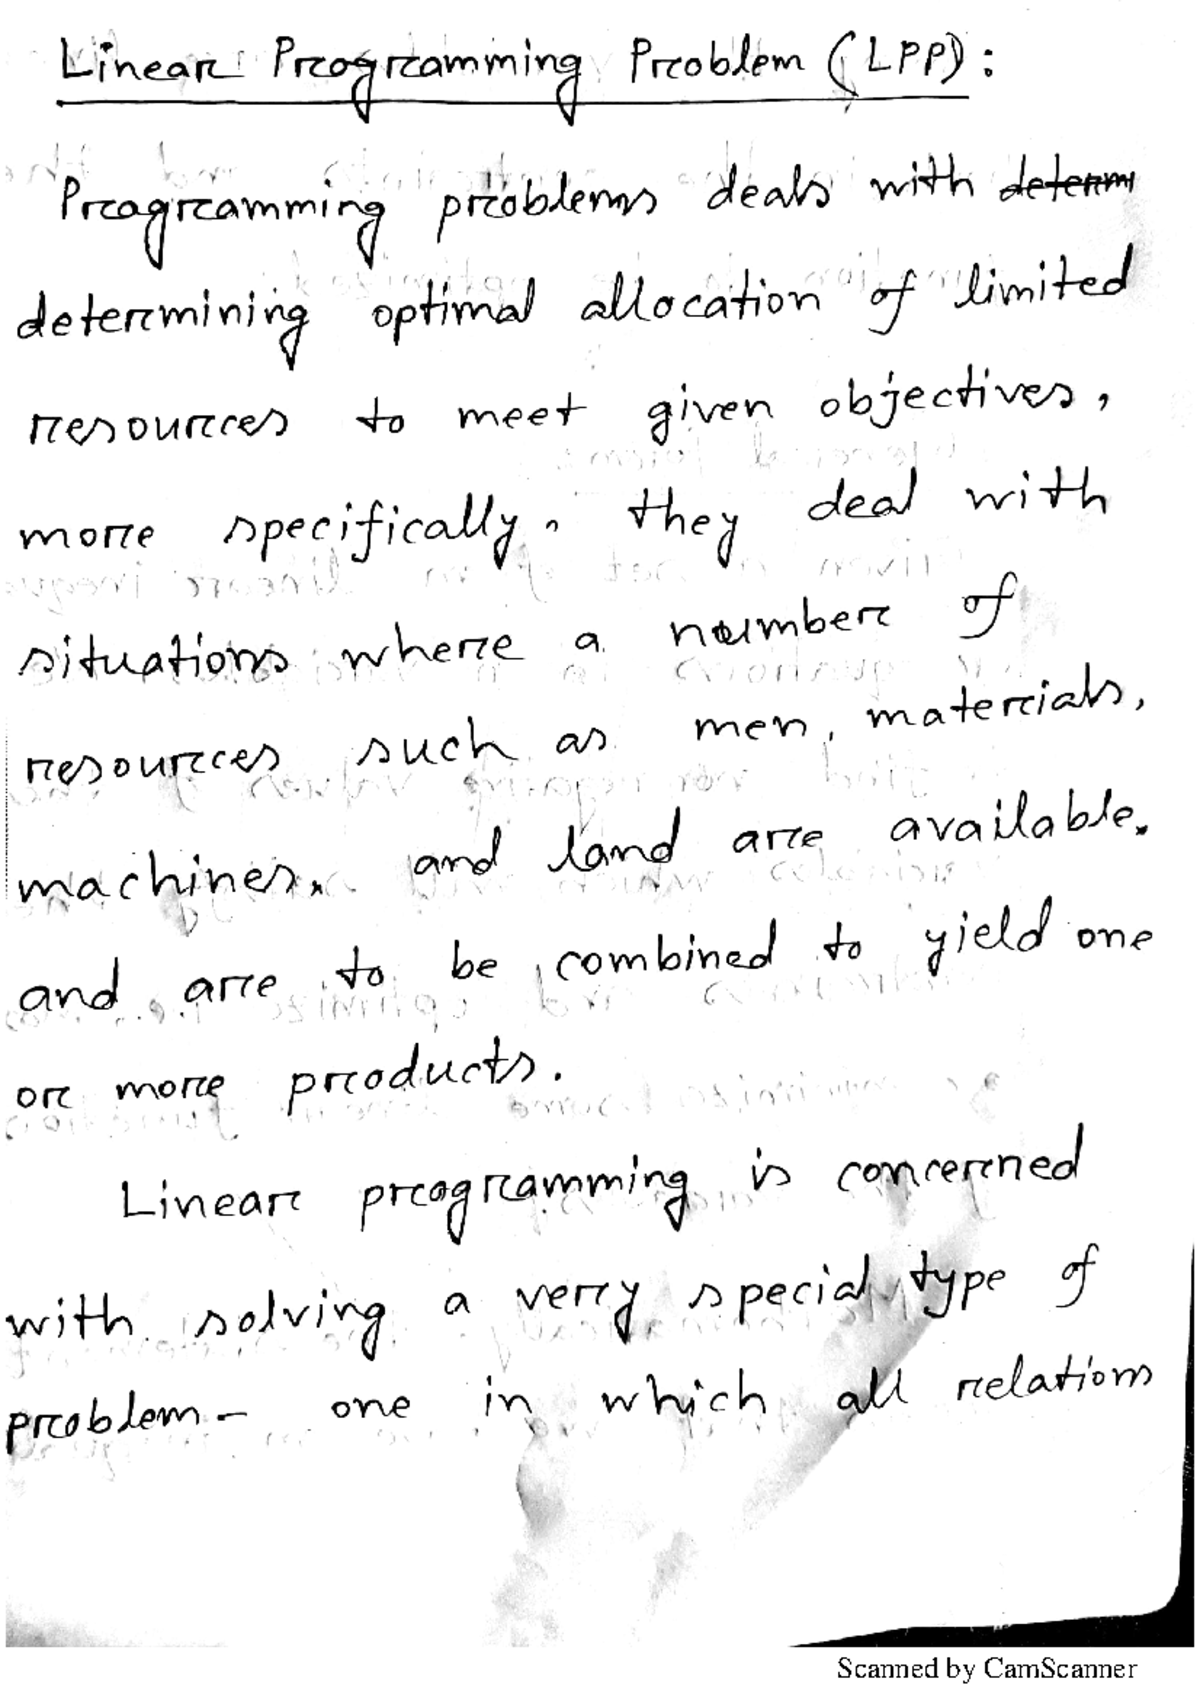 Linear Programming Problem (LPP):
Programming problems deals with determ
determining optimal allocation of limited
resources to meet given objectives,
more specifically, they deal with
situations where a number of
resources such as men, materials,
machines, and land are available.
and are to be combined to yield one
or more products.
Linear programming is concerned
with solving a very special type of
problem – one in which all relations
Scanned by CamScanner